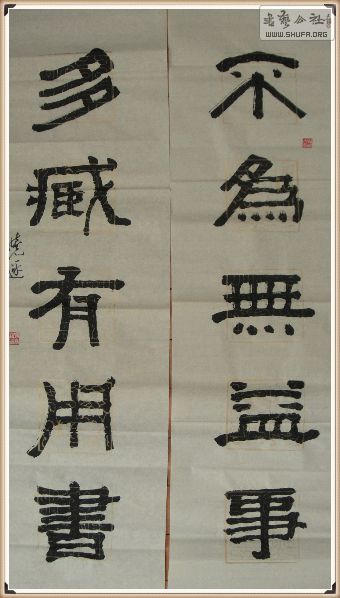 不為無益事
多臧有用書
書藝公社
WWW.SHUFA.ORG